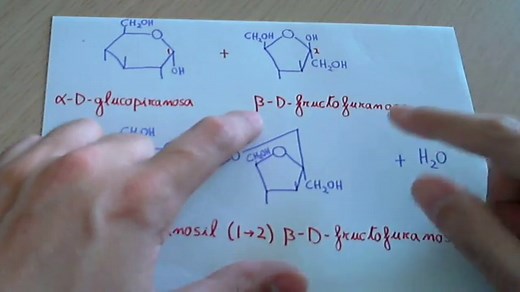 CH₂OH
O
1
OH
+
CH₂OH
O
OH
2
CH₂OH
α-D-glucopiranosa
β-D-fructofurano
CH₂OH
O
CH₂OH
O
CH₂OH
+ H₂O
(1→2) β-D-fructofuranos